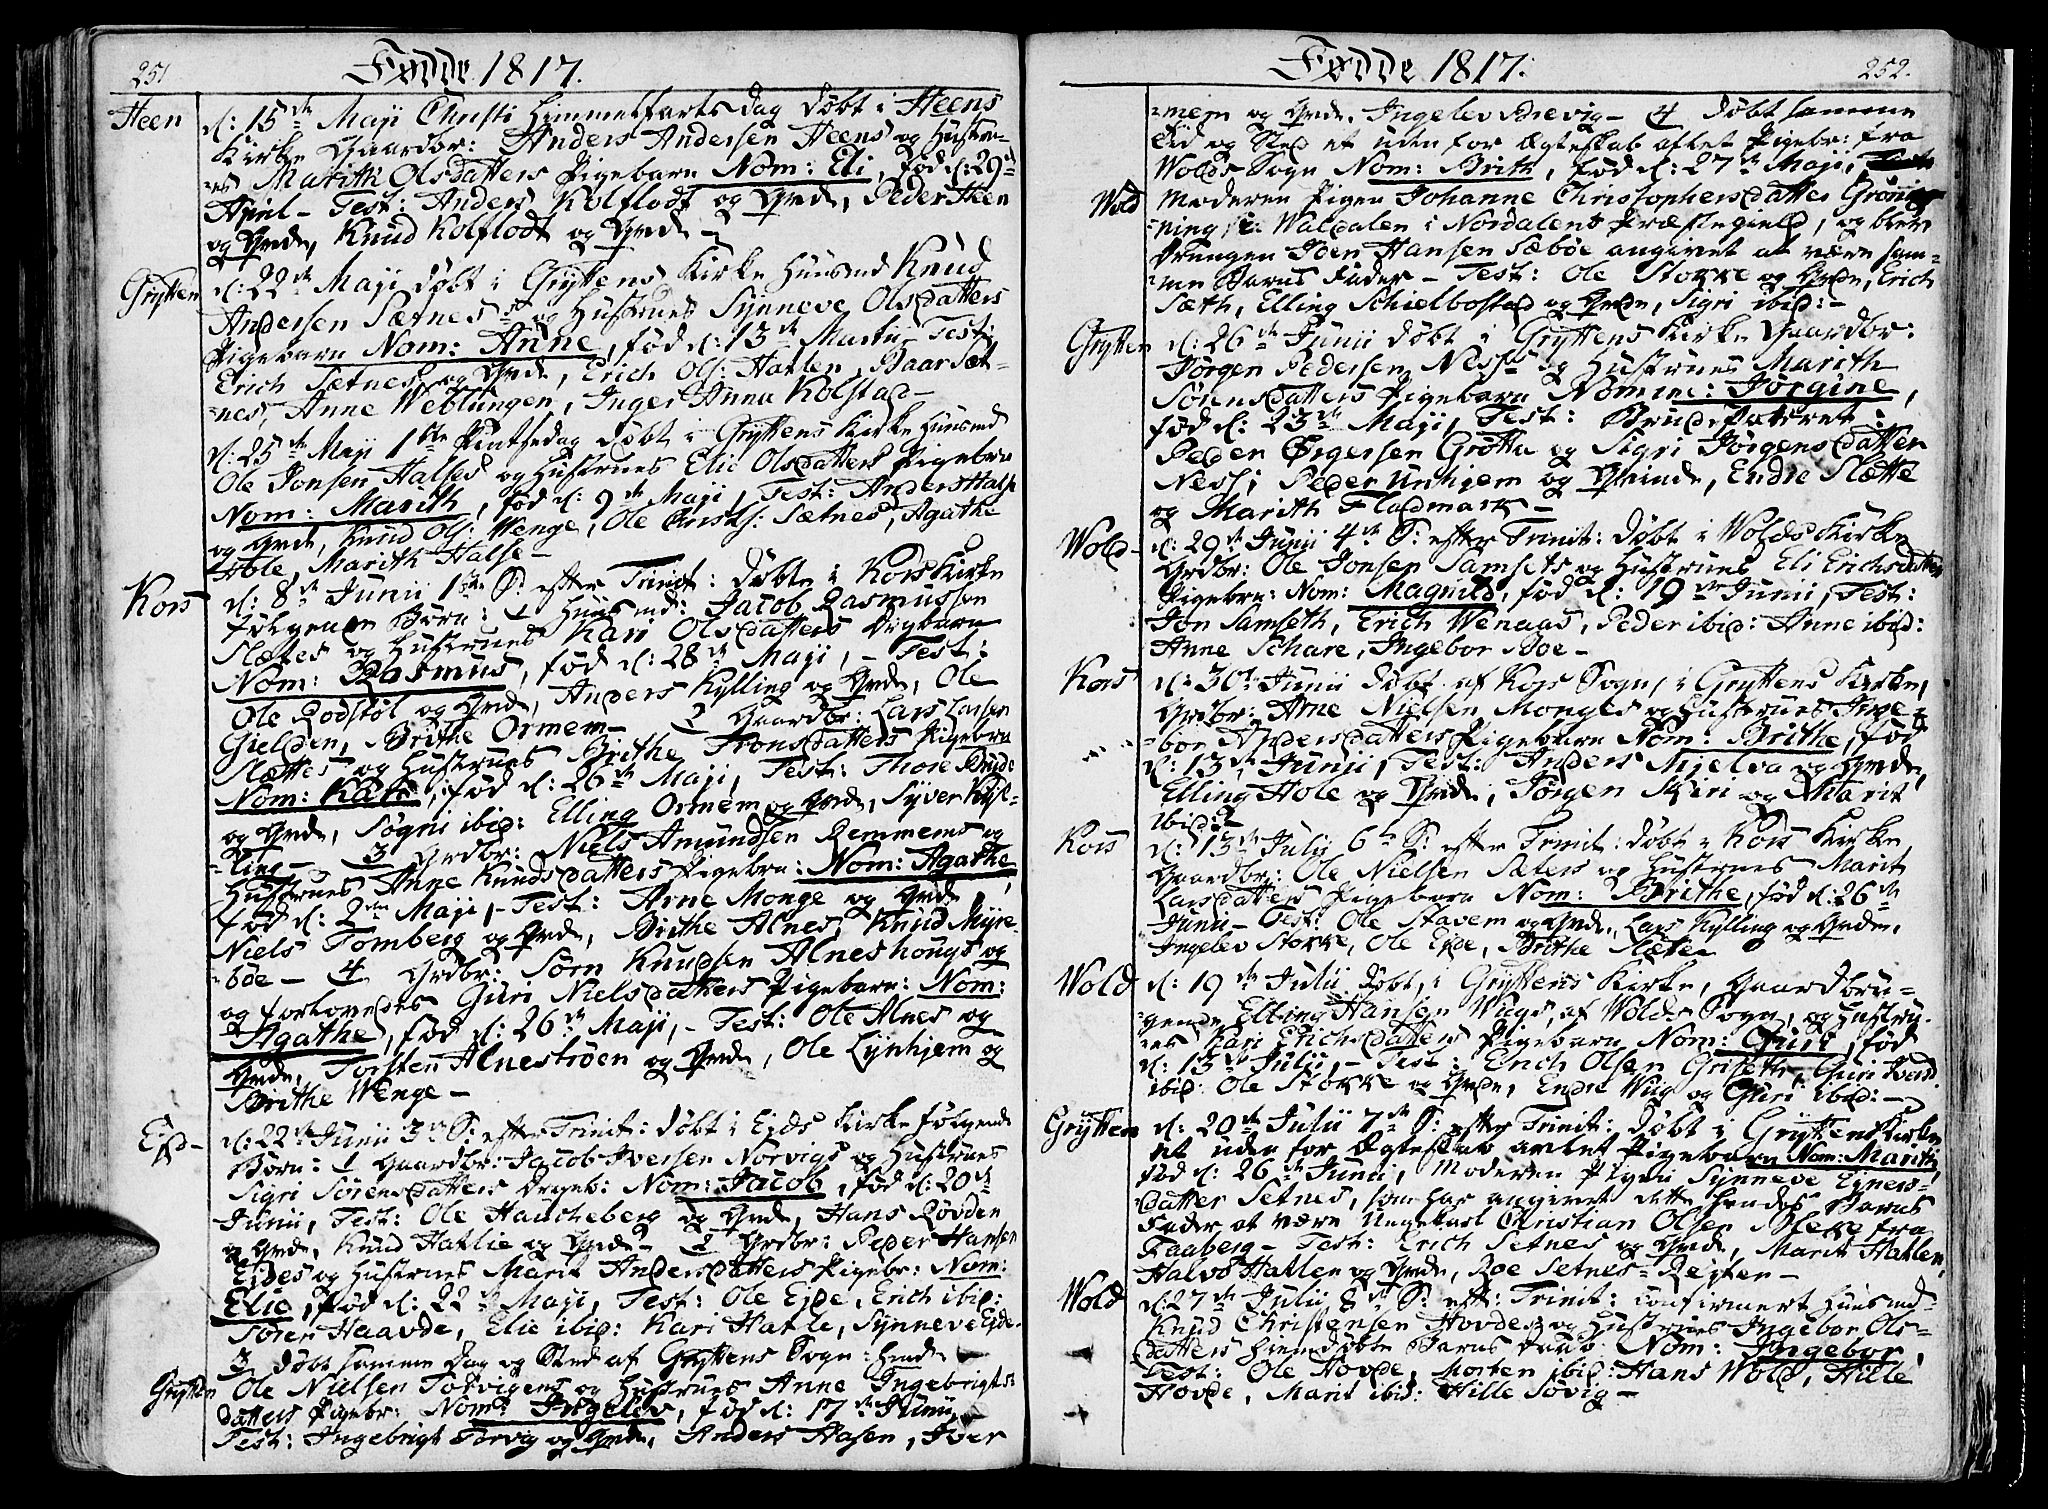 251
Fødde 1817.
Heen
d: 15de Maji Christi Himmelfarts Dag døbt i Heens
Kirke Gaardbr: Anders Andersen Heens og Hustru-
es Marith Olsdatters Pigebarn Nom: Eli, fød d: 29de
April – Test: Anders Kolflodt og Qvde, Peder Heen
og Qvde, Knud Kolflodt og Qvde –
Grytten
d: 22de Maji døbt i Gryttens Kirke Huusmd Knud
Andersen Sætnes og Hustrues Synneve Olsdatters
Pigebarn Nom: Anne, fød d: 13de Martii Test:
Erich Sætnes og Qvde, Erich Ols: Hatlen, Baar Sæt-
nes, Anne Weblungen, Inger Anna Kolstad –
d: 25de Maji 1ste Pintsedag døbt i Gryttens Kirke Huusmd
Ole Jonsen Halses og Hustrues Elie Olsdatters Pigebrn
Nom: Marith, fød d: 9de Maji, Test: Anders Halse
og Qvde, Knud Ols: Wenge, Ole Sætnes, Agathe
Hole, Marith Halse –
Kors
d: 8de Junii 1ste S: efter Trinit: døbte i Kors Kirke
følgende Børn: 1 Huusmd: Jacob Rasmussen
Slætes og Hustrues Kari Olsdatters Drgbarn
Nom: Rasmus, fød d: 28de Maji, – Test:
Ole Rødstøl og Qvde, Anders Kylling og Qvde, Ole
Gielden, Brithe Ormem – 2 Gaardbr: Lars Larsen
Slættes og Hustrues Brithe Tronsdatters Pigebrn
Nom: , fød d: 26de Maji, Test: Thore
og Qvde, Søgni ibid: Elling Ormem og Qvde, Syver Kyl-
ling – 3 Grdbr: Niels Amundsen Remmems og
Hustrues Anne Knudsdatters Pigebrn: Nom: Agathe
fød d: 2den Maji, – Test: Arne Monge og Qvde,
Niels Tomberg og Qvde, Brithe Alnes, Knud Myre-
bøe – 4 Grdbr: Sørn Knudsen Alneshougs og
og forlovedes Guri Nielsdatters Pigebarn: Nom:
Agathe, fød d: 26de Maji, – Test: Ole Alnes og
Qvde, Torsten Alnestrøen og Qvde, Ole Lynhjem og
Brithe Wenge –
Ejd –
d: 22de Junii 3de S: efter Trinit: døbt i Ejds Kirke følgende
Børn: 1 Gaardbr: Jacob Iversen Norvigs og Hustrues
Sigri Sørensdatters Drgeb: Nom: Jacob, fød d: 20de
Junii, Test: Ole Haucheberg og Qvde, Hans Røvden
og Qvde, Knud Hatlie og Qvde – 2 Grdbr: Peder Hansen
Ejdes og Hustrues Marit Andersdatters Pigebr: Nom:
Elie, fød d: 22de Maji, Test: Ole Ejde, Erich ibid:
Sører Haavde, Elie ibid: Kari Hatle, Synneve Ejde
3 døbt samme Dag og Sted af Gryttens Sogn:
Grytten
Ole Nielsen Torvigens og Hustrues Anne Ingebrigts:
datters Pigebr: Nom: Ingelev, fød d: 17de Junii,
Test: Ingebrigt Torvig og Qvde, Anders Aasen, Iver
Fødde 1817:
252.
mem og Qvde, Ingelev Brevig – 4 døbt samme
Tid og Sted et uden for Ægteskab aflet Pigebr: fra
Wolds Sogn Nom: Brith, fød d: 27de Maji,
Wold
Moderen Pigen Johanne Christophersdatter Grønni
ning, i Waldalen i Nordalens Præstegield, og blev
Drengen Joen Hansen Sæbøe angivet at være sam-
me Barns Fader – Test: Ole Stokke og Qvde, Erich
Sæth, Elling Schielbostad og Qvde, Sigri ibid: –
Grytten
d: 26de Junii døbt i Gryttens Kirke Gaardbr:
Jørgen Pedersen Ness og Hustrues Marith
Sørensdatters Pigebarn Nomine: Jørgine,
fød d: 23de Maji, Test: Brudeparret:
Peder Ørgersen Grøtta og Sigri Jørgensdatter
Ness; Peder Unhjem og Qvinde, Endre Slætte
og Marith Flademark –
Wold –
d: 29de Junii 4de S: efter Trinit: døbt i Wolds Kirke
Grdbr: Ole Jonsen Samsets og Hustrues Eli Erichsdatters
Pigebrn: Nom: Magnild, fød d: 19de Junii, Test:
Jon Samseth, Erich Wenaas, Peder ibid: Anne ibid:
Anne Schare, Ingebor Boe –
Kors
d: 30de Junii døbt af Kors Sogn, i Gryttens Kirke,
Grdbr: Arne Nielsen Monges og Hustrues Inge-
bor Andersdatters Pigebarn Nom: Brithe, fød
d: 13de Junii, Test: Anders Mjelva og Qvde,
Elling Hole og Qvde, Jørgen Skiri og Marit
ibid:
Kors
d: 13de Julii 6te S: efter Trinit: døbt i Kors Kirke
Gaardbr: Ole Nielsen Sæters og Hustrues Marit
Larsdatters Pigebarn Nom: Brithe, fød d: 26de
Junii – Test: Ole Stavem og Qvde, Lars Kylling og Qvde,
Ingelev Stokke, Ole Ejde, Brithe Slæte –
Wold
d: 19de Julii døbt, i Gryttens Kirke, Gaardbru-
gende Elling Hansen Wiigs, af Wolds Sogn, og Hustru-
es Kari Erichsdatters Pigebarn Nom: Guri, fød
d: 13de Julii, – Test: Erich Olsen Griseth, Guri
ibid: Ole Stokke og Qvde, Endre Wiig og Guri ibid: –
Grytten
d: 20de Julii 7de S: efter Trinit: døbt i Gryttens Kirke
et uden for Ægteskab avlet Pigebarn Nom: Marith,
fød d: 26de Junii, Moderen Pigen Synneve Ejners-
datter Setnes, som har angivet dette hendes Barns
Fader at være Ungekarl Christian Olsen Bleke fra
Faaberg – Test: Erich Setnes og Qvde, Marit Hatlen,
Halvo Hatlen og Qvde, Roe Setnes – Rejten –
Wold
d: 27de Julii 8de S: eft: Trinit: confirmert Huusmd
Knud Christensen Hovdes og Hustrues Ingebor Ols-
datters hiemdøbte Barns Daab Nom: Ingebor,
Test: Ole Hovde, Morten ibid: Hans Wold, Hille
Hovde, Marit ibid: Hille Søvig –